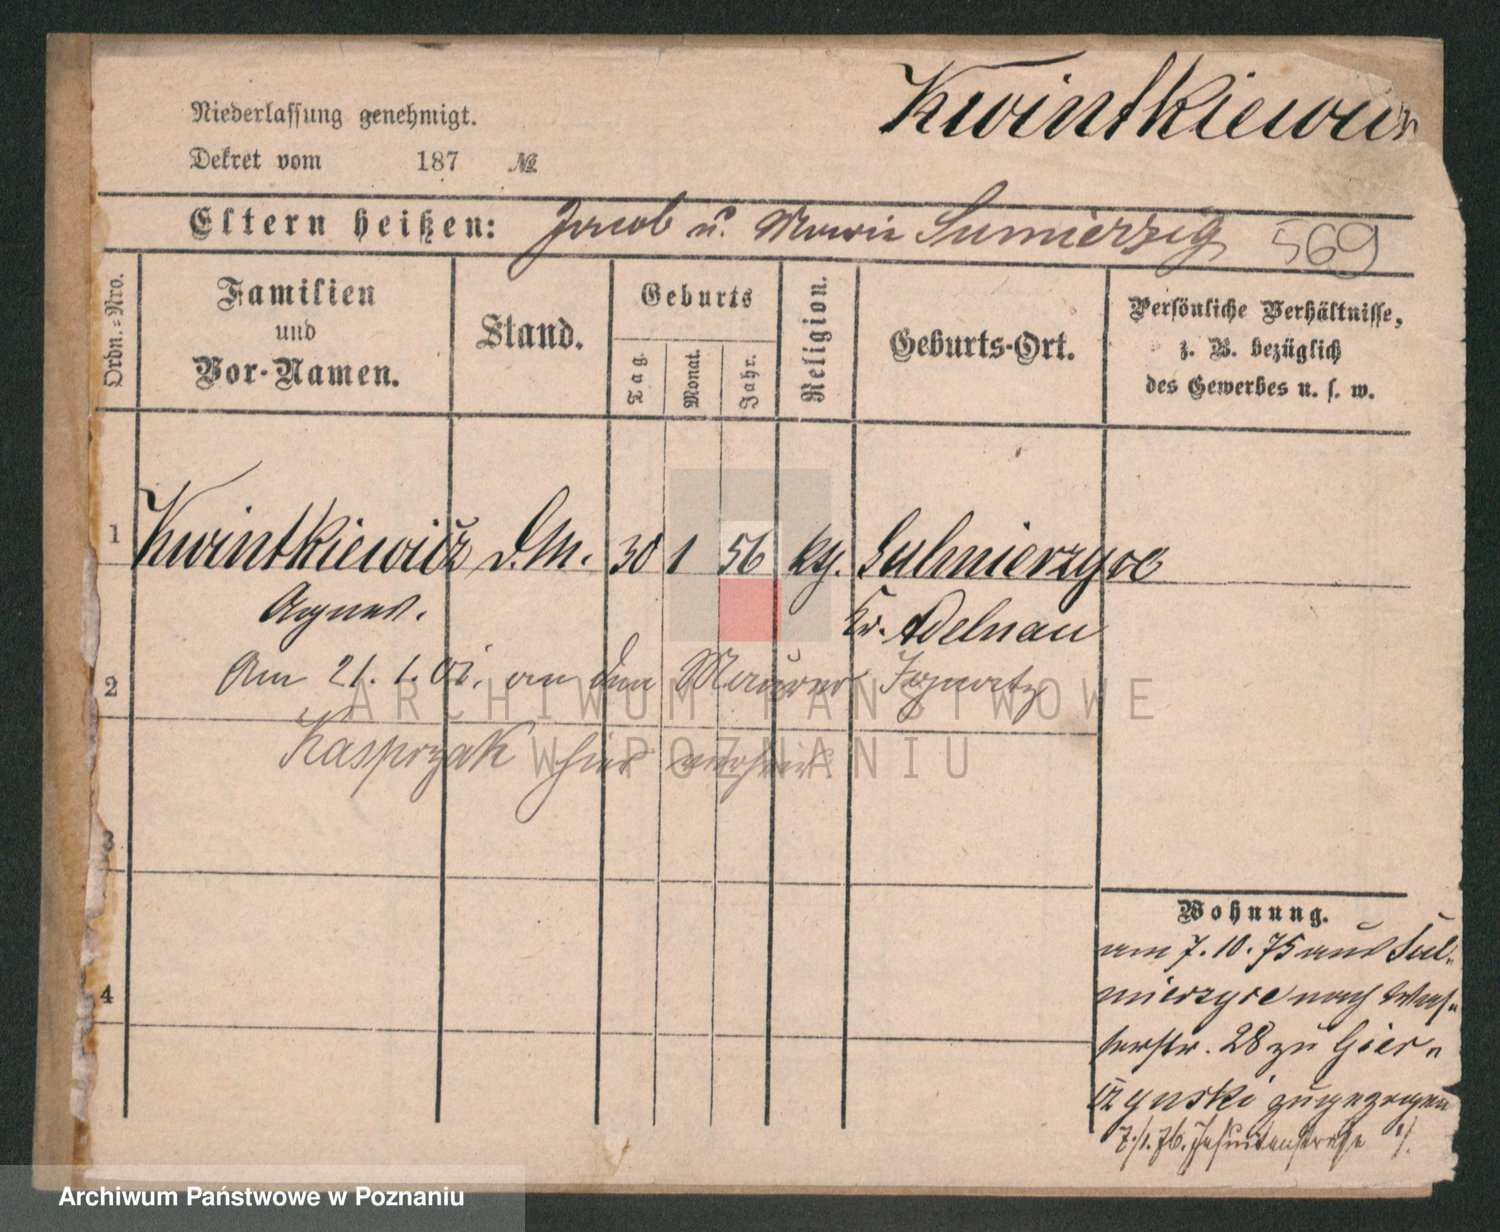 Kwintkiewicz
Niederlassung genehmigt.
Dekret vom 187 №
Eltern heißen: Jacob u. Marie
569
Ordn.-Nro.
Familien
und
Vor-Namen.
Stand.
Geburts
Tag.
Monat.
Jahr.
Religion.
Geburts-Ort.
Persönliche Verhältnisse,
z. B. bezüglich
des Gewerbes u. s. w.
1 Kwintkiewicz D.M. 30 1 56 Sulmierzyce
Agnes. Kr. Adelnau
2 Am 21. 1. an den Maurer Ignatz
Kasprzak hier verheir.
3
4
Wohnung.
am 7. 10. 75 aus Sul-
mierzyce nach Was-
serstr. 28 zu Gier-
czynski zugezogen
7./1. 76. Jesuitenstraße
ARCHIWUM PAŃSTWOWE
W POZNANIU
Archiwum Państwowe w Poznaniu